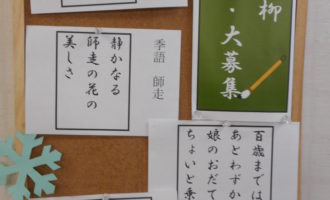 柳
・大募集
季語 師走
静かなる
師走の花の
美しさ
百歳までは
あとわずか
娘のおだて
ちょいと乗